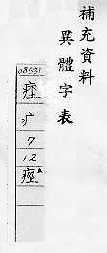 補充資料
異體字表
08531
痙
疒
7
12
痉